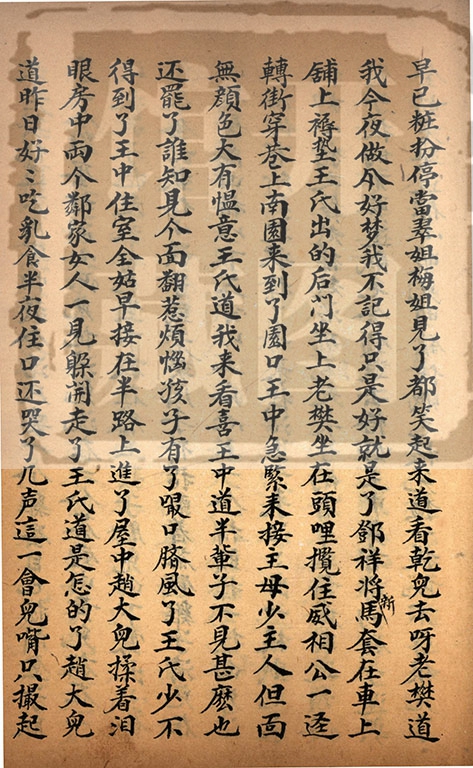 早已粧扮停當翠姐梅姐見了都笑起来道看乾兒去呀老樊道
我今夜做个好梦我不記得只是好就是了鄧祥将馬套在車上
新
鋪上褥墊王氏出的后门坐上老樊坐在頭哩攬住威相公一迳
轉街穿巷上南園来到了園口王中急緊来接主母少主人但面
無顔色大有愠意王氏道我来看喜王中道半輩子不見甚麽也
还罷了誰知見个面翻惹煩惱孩子有了嘬口臍風了王氏少不
得到了王中住室全姑早接在半路上進了屋中趙大兒揉着泪
眼房中両个鄰家女人一見躱開走了王氏道是怎的了趙大兒
道昨日好〻吃乳食半夜住口还哭了几声這一會兒嘴只撮起